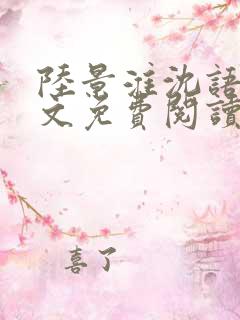 陸景淮沈語
文免費閱讀
喜了